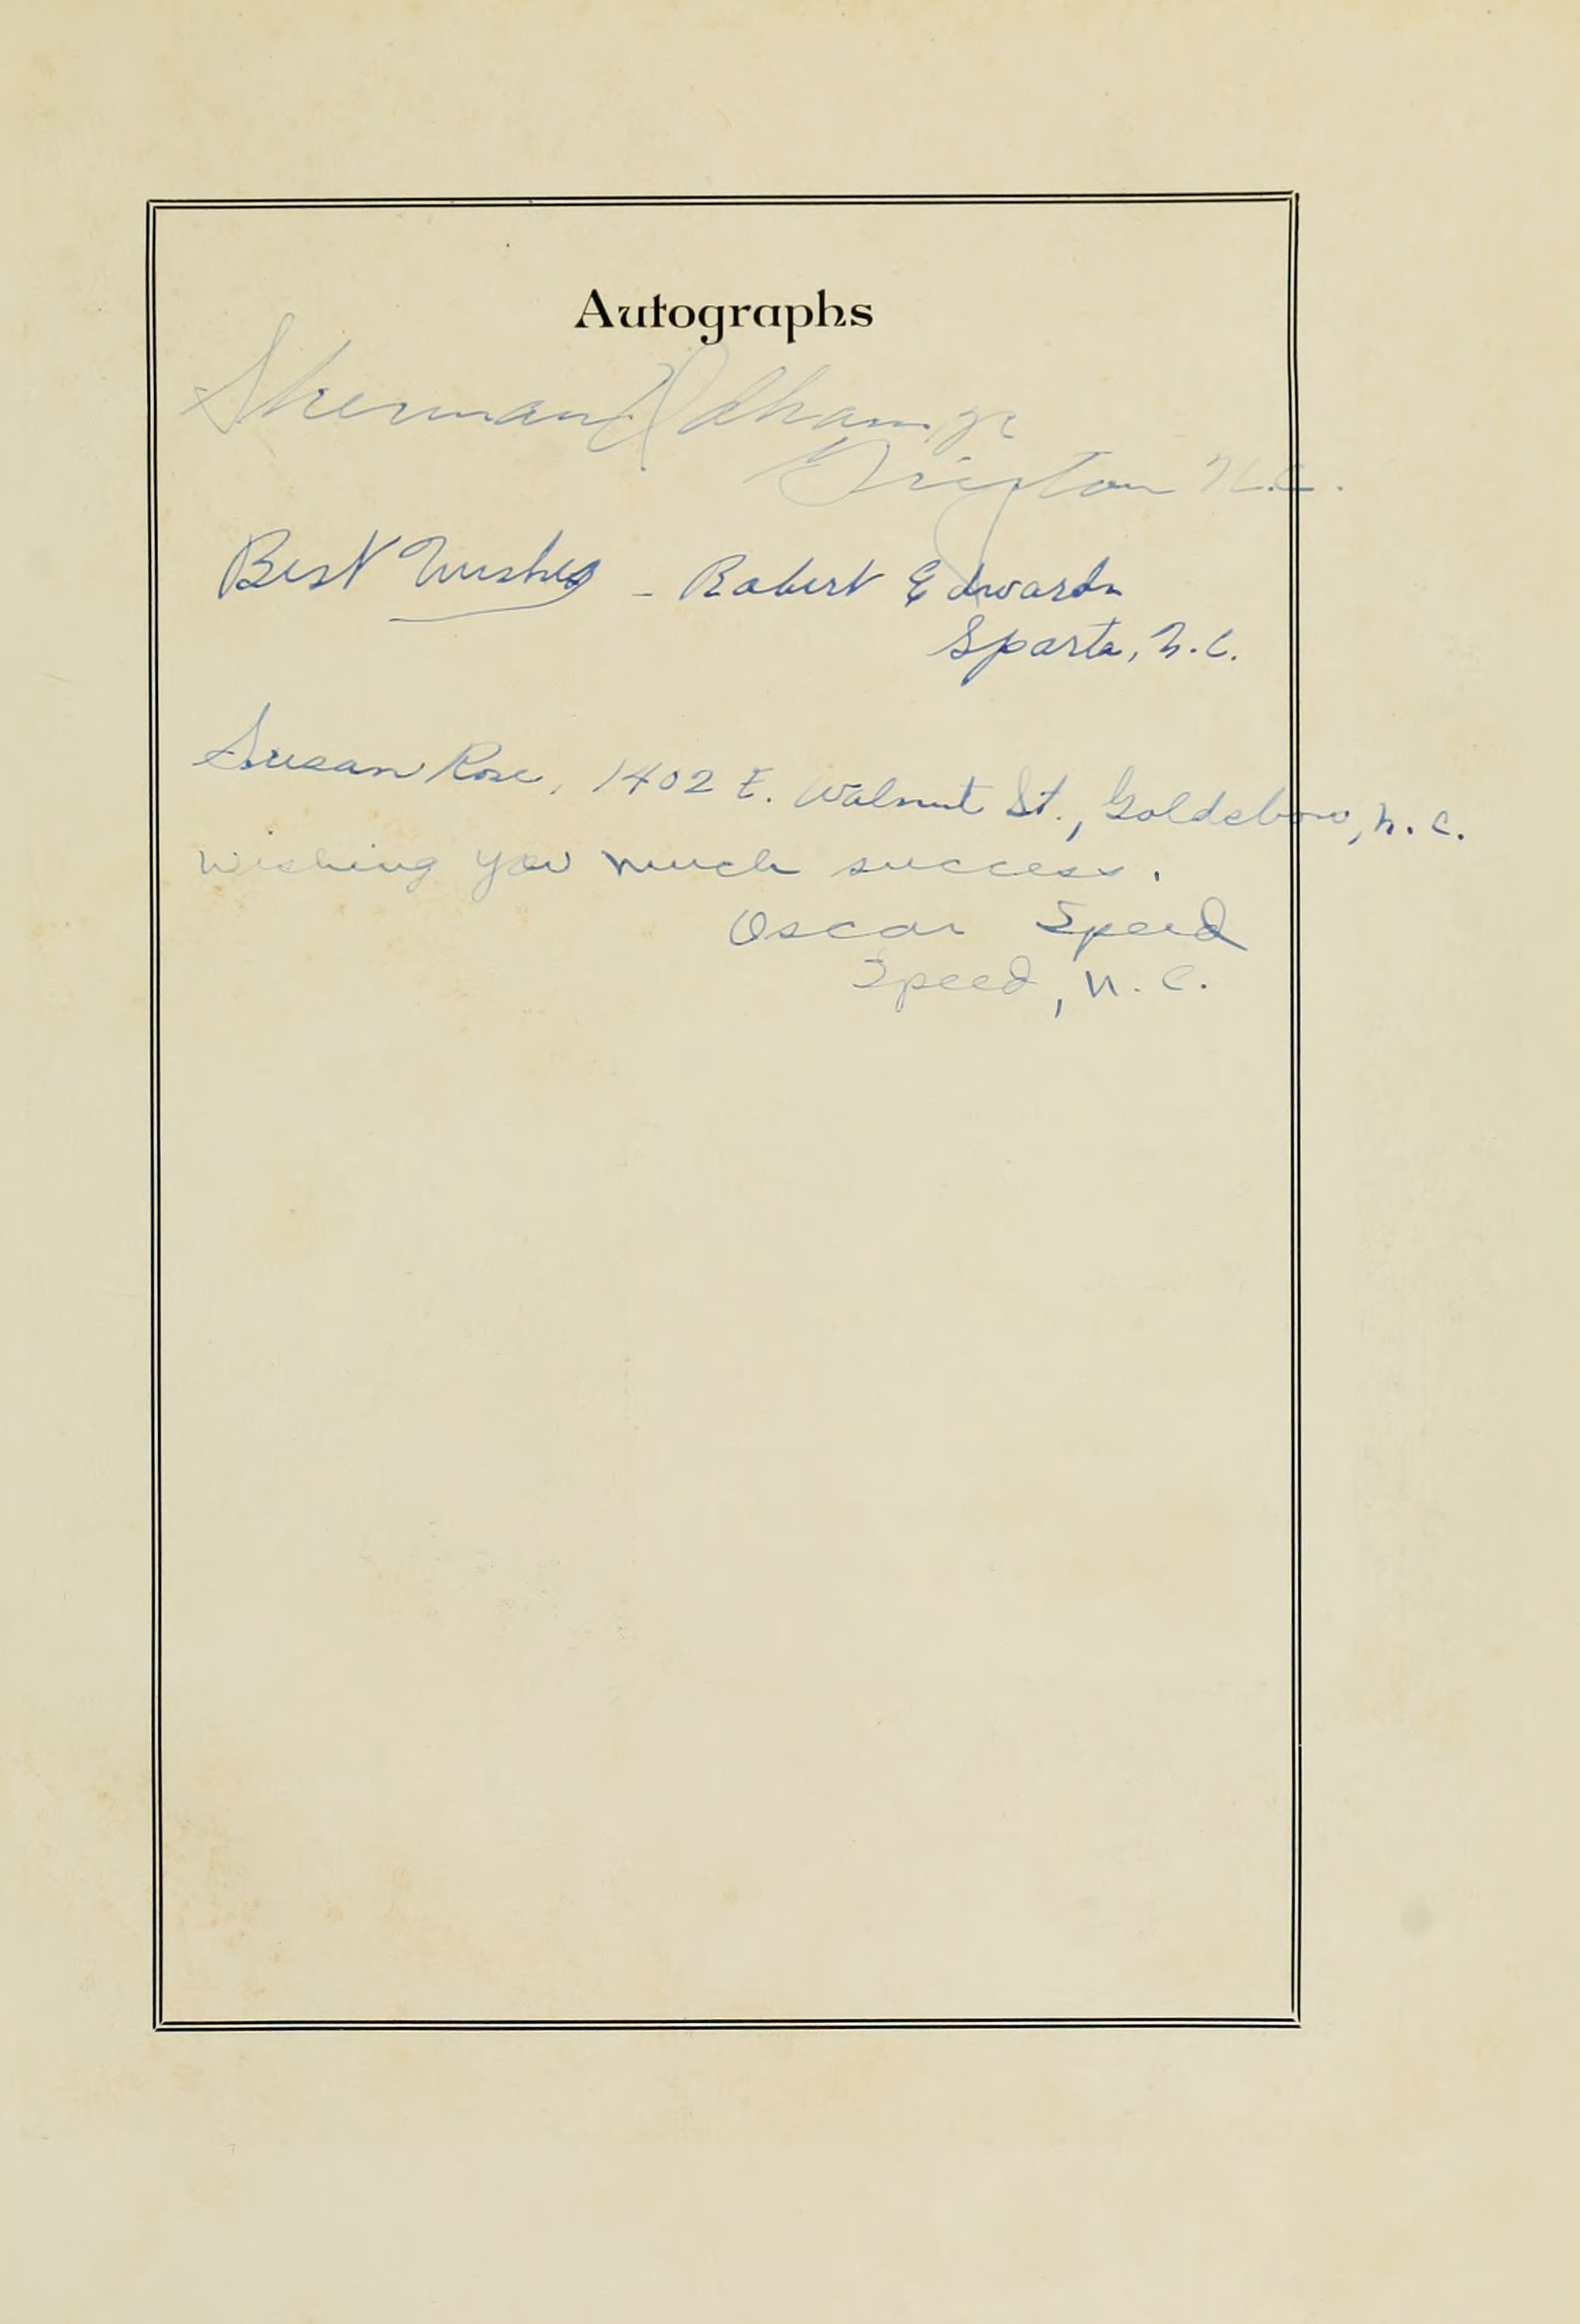 Autographs
Sherman Oldham, Jr
N.C.
Best Wishes - Robert Edwards
Sparta, N.C.
Susan Rose, 1402 E. Walnut St., Goldsboro, N.C.
Wishing you much success.
Oscar Speed
Speed, N.C.